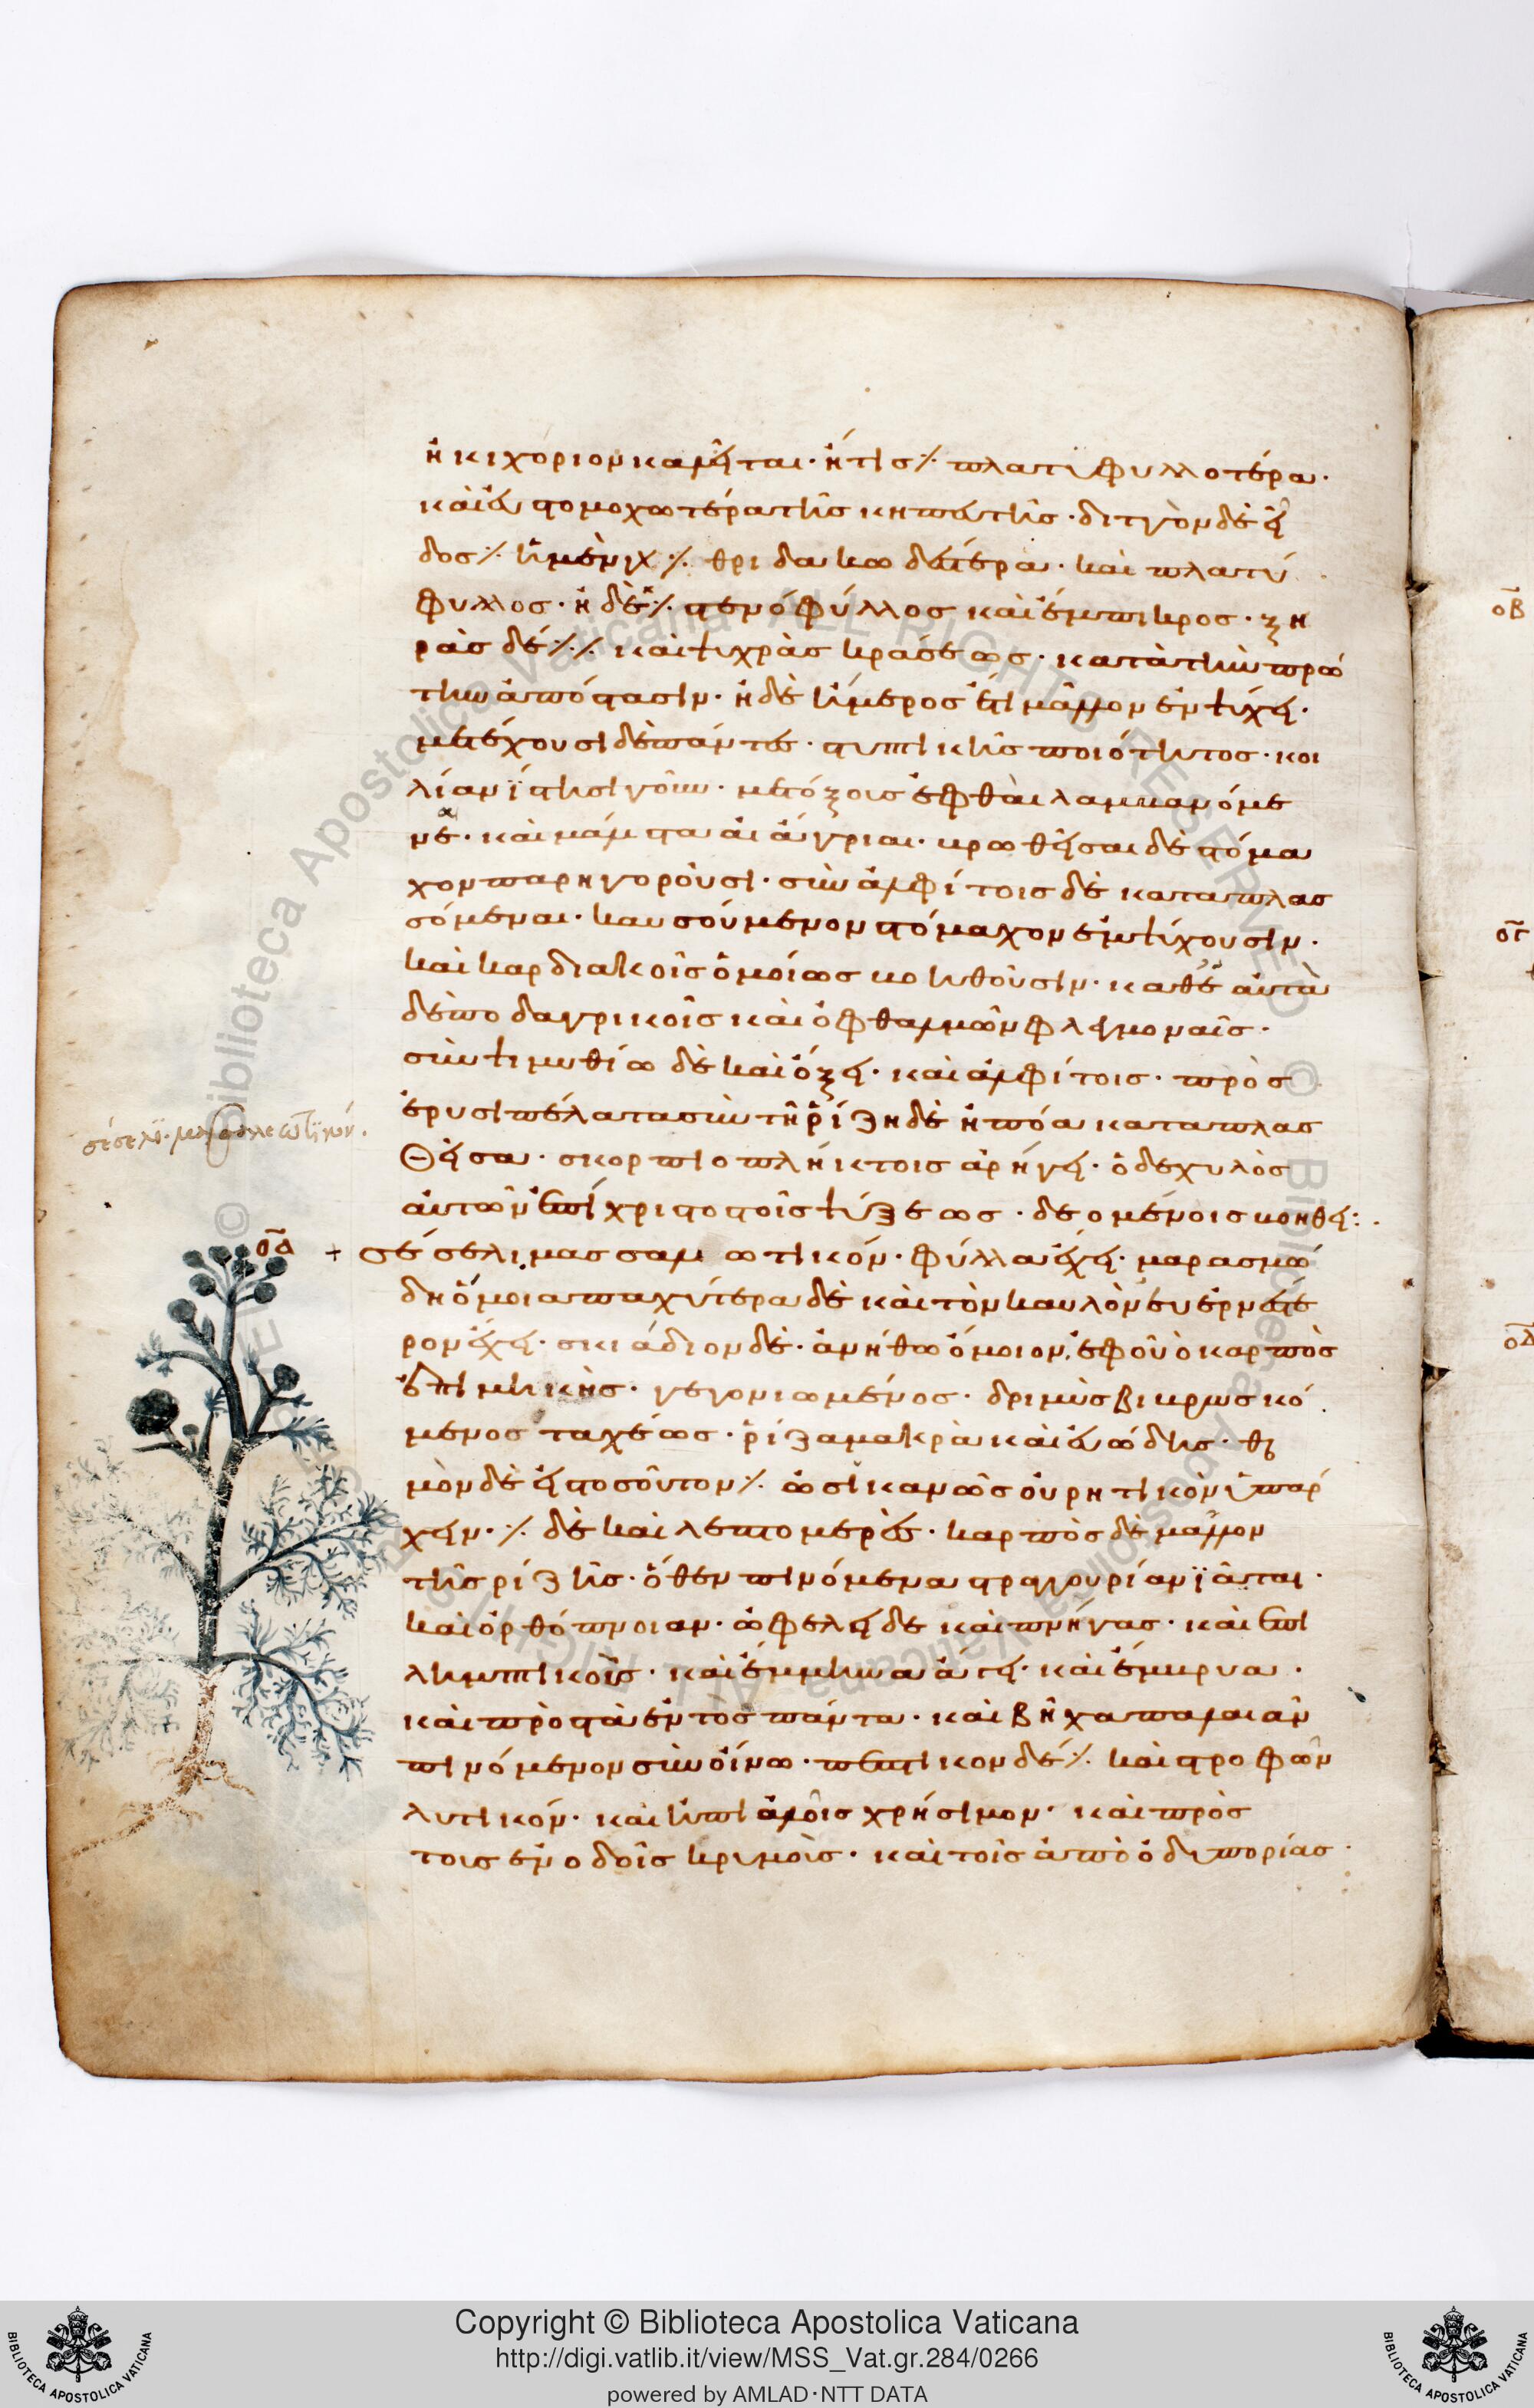 ἢ κιχόριον καλεῖται · ἥτις ⁒ πλατυφυλλοτέρα ·
καὶ εὐστομαχωτέρα τῆς κηπευτῆς · διττὸν δὲ εἶ
δος ⁒ ἡ μὲν γὰρ ⁒ θριδακωδεστέρα · καὶ πλατύ
φυλλος · ἡ δὲ ⁒ στενόφυλλος καὶ ἔμπικρος · ξη
ρὰς δέ ⁒ ⁒ καὶ ψυχρὰς κράσεως · κατὰ τὴν πρώ
την ἀπόστασιν · ἡ δὲ ἥμερος ἔτι μᾶλλον ἐμψύχει ·
μετέχουσι δὲ πάντες · στυπτικῆς ποιότητος · κοι
λίαν ἵστησι γοῦν · μετ όξους ἑφθαὶ λαμβανόμε
ναι · καὶ μάλιστα αἱ ἄγριαι · βρωθεῖσαι δὲ στόμα
χον παρηγοροῦσι · σὺν ἀλφίτοις δὲ καταπλασ
σόμεναι · καυσούμενον στόμαχον ἐμψύχουσιν ·
καὶ καρδιακοῖς ὁμοίως βοηθοῦσιν · καθ ἑαυτὰ
δὲ ποδαγρικοῖς καὶ ὀφθαλμῶν φλεγμοναῖς ·
σὺν ψιμυθίω δὲ καὶ ὄξει · καὶ ἀλφίτοις · πρὸς
ἐρυσιπέλατα σὺν τῆ ῥίζη δὲ ἡ πόα καταπλασ
θεῖσα · σκορπιοπλήκτοις ἀρήγει · ὁ δε χυλὸς
αὐτῶν ἐπίχριστο τοῖς ψύξεως · δεομένοις βοηθεῖ :
σέσελϊ · μασσαλεωτϊκόν .
οδ + σέσελι μασσαλεωτικόν · φύλλα ἔχει · μαράθρω
δη ὅμοια παχύτερα δὲ καὶ τὸν καυλὸν εὐερνέστε
ρον ἔχει · σκιάδιον δὲ · ἀνήθω ὅμοιον, ἐφ οὗ ὁ καρπὸς
ἐπιμήκης · γεγονιωμένος · δριμὺς βιβρωσκό
μενος ταχέως · ῥίζα μακρὰ καὶ εὐώδης · θερ
μὸν δὲ εἰς τοσοῦτον ⁒ ὡς ἱκανῶς οὐρητικὸν ὑπάρ
χειν · ⁒ δὲ καὶ λεπτομερὲς · καρπὸς δὲ μᾶλλον
τῆς ρίζης · ὅθεν πινόμενα στραγγουρίαν ϊᾶται ·
καὶ ὀρθόπνοιαν · ὠφελεῖ δε καὶ πνίγας · καὶ ἐπι
ληπτικοῖς · καὶ ἔμμηνα ἄγει · καὶ ἔμβρυα ·
καὶ πρὸς τὰ ἐντὸς πάντα · καὶ βῆχα παλαιὰν
πινόμενον σὺν οἴνω · πεπτικον δέ ⁒ καὶ στροφῶν
λυτικόν · καὶ ἠπιάλοις χρήσιμον · καὶ πρὸς
τους ἐν ὁδοῖς κρυμοὺς · καὶ τοῖς ἀπὸ ὁδυπορίας ·
οβ
ογ
οδ
© Biblioteca Apostolica Vaticana ALL RIGHTS RESERVED
Copyright © Biblioteca Apostolica Vaticana
http://digi.vatlib.it/view/MSS_Vat.gr.284/0266
powered by AMLAD·NTT DATA
BIBLIOTECA APOSTOLICA VATICANA
BIBLIOTECA APOSTOLICA VATICANA